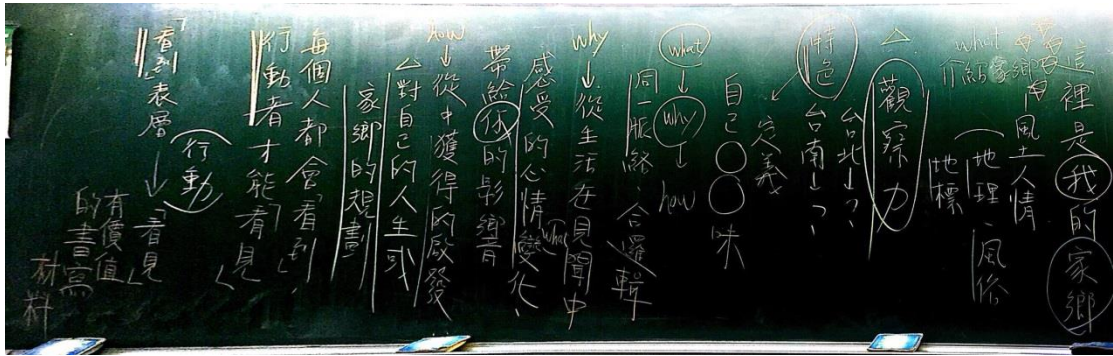 這裡是我的家鄉
風土人情
what
介紹家鄉
(地理、風俗
地標
△觀察力
台北→?
台南→?
特色
↙定義
自己○○味
what→why→how
同一脈絡、合羅輯
why→從生活在見聞中
感受的心情變化、
what
帶給你的影響
how→從中獲得的啟發
△對自己的人生或
家鄉的規劃
每個人都會「看到」,
行動者才能「看見」
(行動)
「看到」表層→「看見」
有價值
的書寫
材料